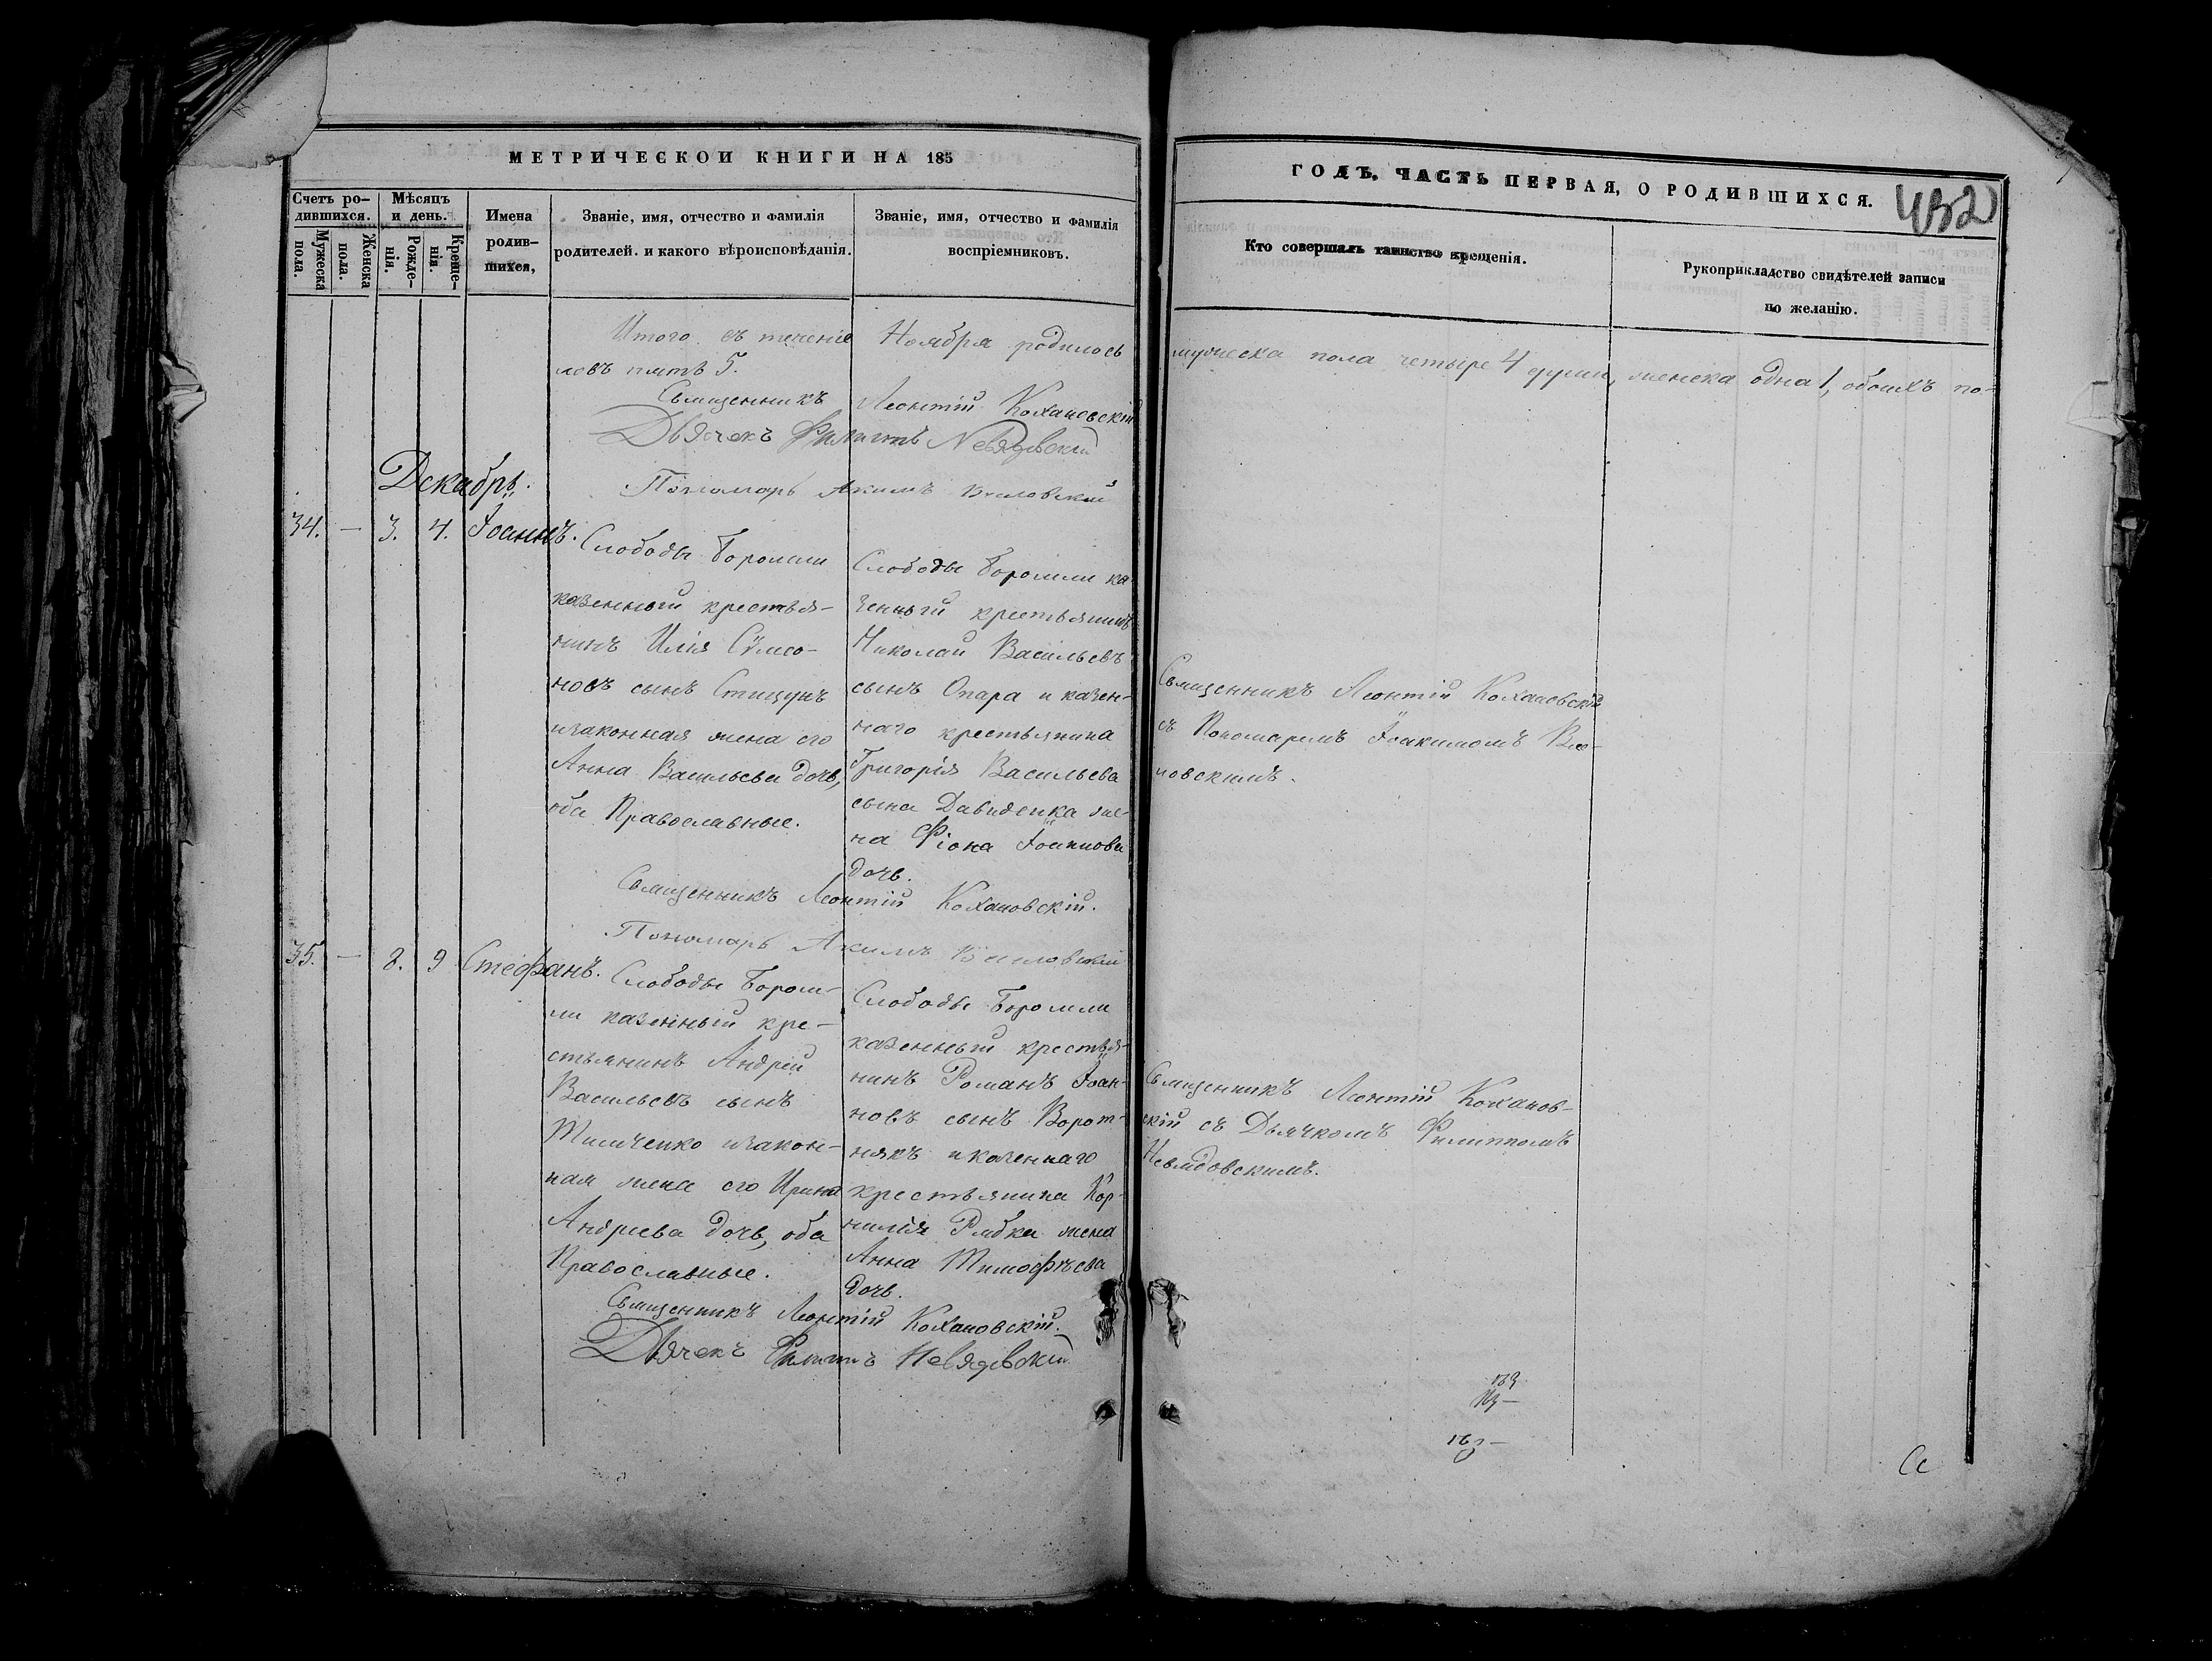 МЕТРИЧЕСКОЙ КНИГИ НА 185
ГОДЪ. ЧАСТЬ ПЕРВАЯ, О РОДИВШИХСЯ.
432
Счетъ ро-
дившихся.
Мужеска
пола.
Женска
пола.
Мѣсяцъ
и день.
Рожде-
нія.
Креще-
нія.
Имена
родив-
шихся,
Званіе, имя, отчество и фамилія
родителей. и какого вѣроисповѣданія.
Званіе, имя, отчество и фамилія
воспріемниковъ.
Кто совершалъ таинство крещенія.
Рукоприкладство свидѣтелей записи
по желанію.
Итого въ теченіе Ноября родилось мужеска пола четыре 4 души, женска одна 1, обоихъ по-
ловъ пять 5.
Священникъ Леонтій Кохановскій
Дьячекъ Филиппъ
Пономарь Акимъ
Декабрь.
34. — 3. 4. Іоаннъ.
Слободы Боромли
казенный крестья-
нинъ Илія
новъ сынъ Стицунъ
изаконная жена его
Анна Васильева дочь,
оба Православные.
Слободы Боромли ка-
зенный крестьянинъ
Николай Васильевъ
сынъ Опара и казен-
наго крестьянина
Григорія Васильева
сына Давиденка же-
на Фіона Іоаннова
дочь.
Священникъ Леонтій Кохановскій
съ Пономаремъ Іоакимомъ
ловскимъ.
Священникъ Леонтій Кохановскій.
Пономарь Акимъ
35. — 8. 9 Стефанъ.
Слободы Бором-
ли казенный кре-
стьянинъ Андрей
Васильевъ сынъ
изакон-
ная жена его Ирина
Андреева дочь, оба
Православные.
Слободы Боромли
казенный крестья-
нинъ Романъ Іоан-
новъ сынъ Ворот-
някъ и казеннаго
крестьянина Кор-
нилія Рябка жена
Анна Тимофѣева
дочь.
Священникъ Леонтій Коханов-
скій съ Дьячкомъ Филиппомъ
Невядовскимъ.
Священникъ Леонтій Кохановскій.
Дьячекъ Филиппъ